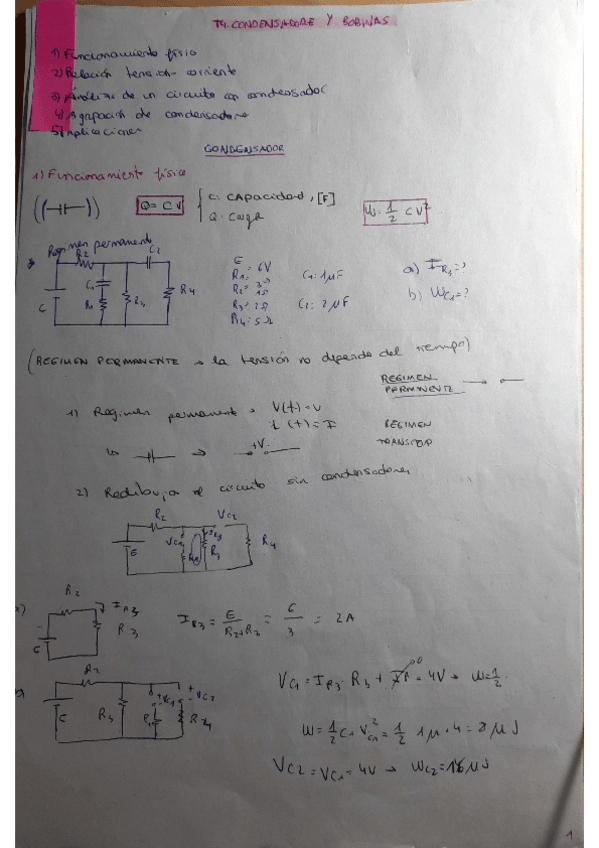 T4. CONDENSADORE Y BOBINAS
1) Funcionamiento físico
2) Relación tensión - corriente
3) Análisis de un circuito con condensador
4) Agrupación de condensadores
5) Aplicaciones
CONDENSADOR
1) Funcionamiento físico
Q = CV
C: CAPacidad, [F]
Q: Carga
W = 1/2 CV²
Regimen permanente
R2 C2
C1 R1 R3 R4
E
E = 6V
R1 =
R2 = 1Ω
R3 = 2Ω
R4 = 5Ω
C1: 1μF
C2: 2μF
a) I R3 = ?
b) WC1 = ?
(REGIMEN PERMANENTE → la tensión no depende del tiempo)
REGIMEN
PERMANENTE
1) Regimen permanent → V(t) = V
i(t) = I
REGIMEN
+V-
2) Redibujar el circuito sin condensadores
R2 VC2
E VC1 IR3 R3 R4
R2
IR3
R3
E
IR3 = E / R2+R3 = 6 / 3 = 2A
R2
E R3 R1 R4
+VC1- +VC2-
VC1 = IR3 · R3 + IR = 4V → W = 1/2
0
W = 1/2 C1 VC1² = 1/2 1μ · 4 = 8 μJ
VC2 = VC1 = 4V → WC2 = 16 μJ
1